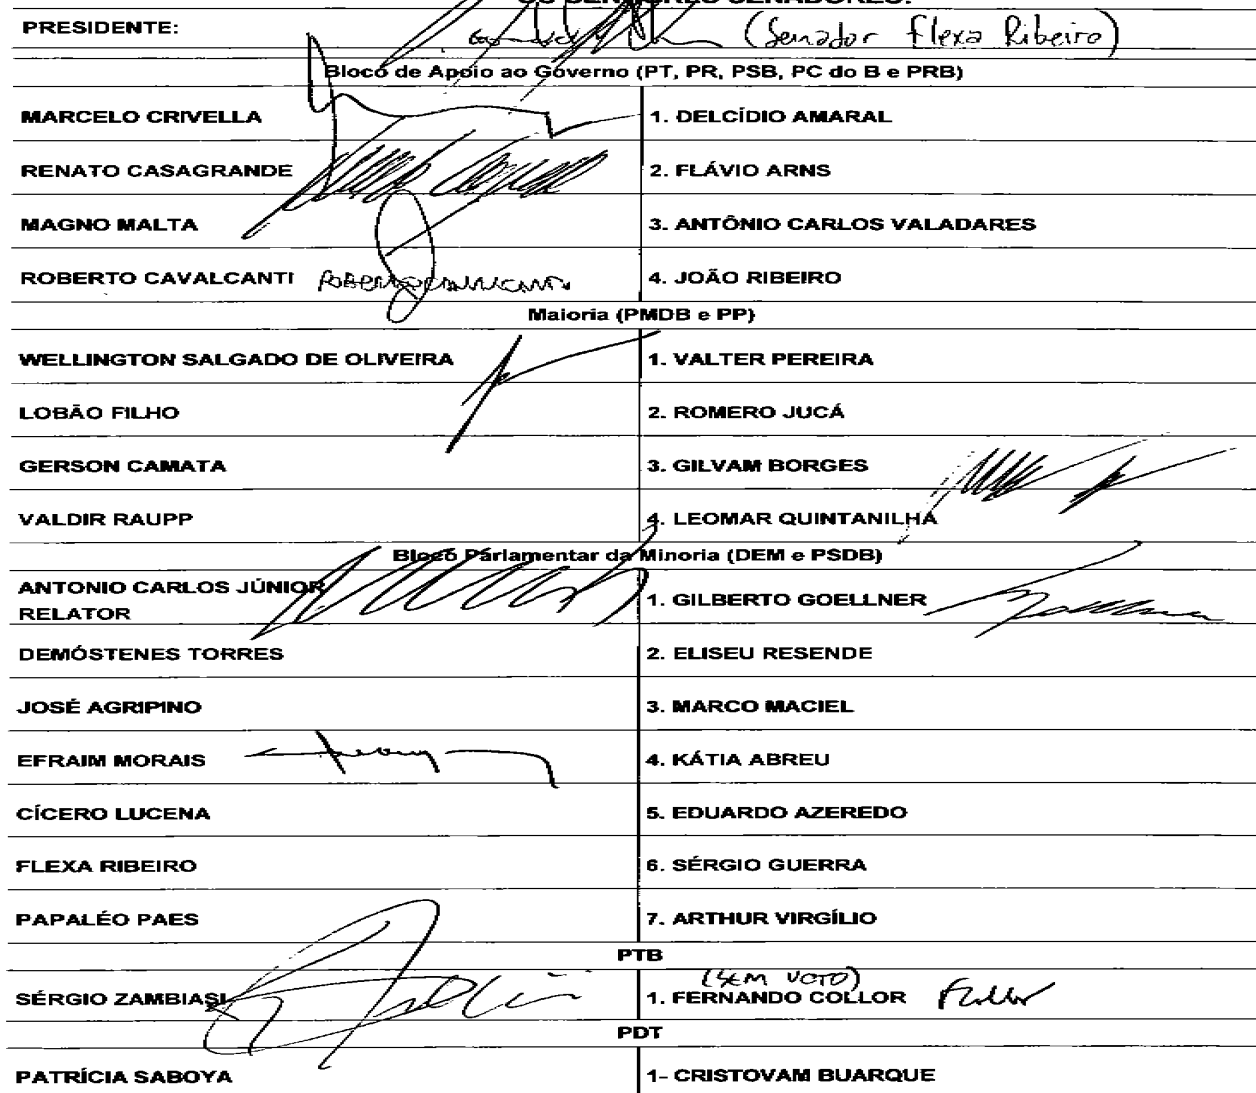 OS SENHORES SENADORES:
PRESIDENTE: (Senador Flexa Ribeiro)
Bloco de Apoio ao Governo (PT, PR, PSB, PC do B e PRB)
MARCELO CRIVELLA 1. DELCÍDIO AMARAL
RENATO CASAGRANDE 2. FLÁVIO ARNS
MAGNO MALTA 3. ANTÔNIO CARLOS VALADARES
ROBERTO CAVALCANTI ROBERTO CAVALCANTI 4. JOÃO RIBEIRO
Maioria (PMDB e PP)
WELLINGTON SALGADO DE OLIVEIRA 1. VALTER PEREIRA
LOBÃO FILHO 2. ROMERO JUCÁ
GERSON CAMATA 3. GILVAM BORGES
VALDIR RAUPP 4. LEOMAR QUINTANILHA
Bloco Parlamentar da Minoria (DEM e PSDB)
ANTONIO CARLOS JÚNIOR
RELATOR 1. GILBERTO GOELLNER
DEMÓSTENES TORRES 2. ELISEU RESENDE
JOSÉ AGRIPINO 3. MARCO MACIEL
EFRAIM MORAIS 4. KÁTIA ABREU
CÍCERO LUCENA 5. EDUARDO AZEREDO
FLEXA RIBEIRO 6. SÉRGIO GUERRA
PAPALÉO PAES 7. ARTHUR VIRGÍLIO
PTB
(SEM VOTO)
SÉRGIO ZAMBIASI 1. FERNANDO COLLOR
PDT
PATRÍCIA SABOYA 1- CRISTOVAM BUARQUE